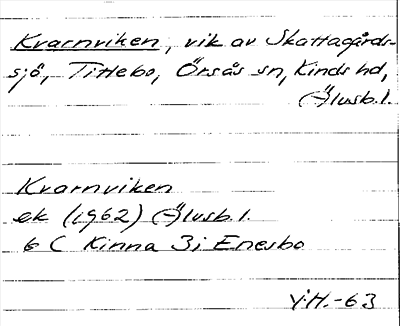 Kvarnviken, vik av Skattagårds-
sjö, Tittebo, Örsås sn, Kinds hd,
(-)Älvsb.l.
Kvarnviken
ek (1962) (-)Älvsb.l.
6 C Kinna 3i Enesbo
V.H.-63